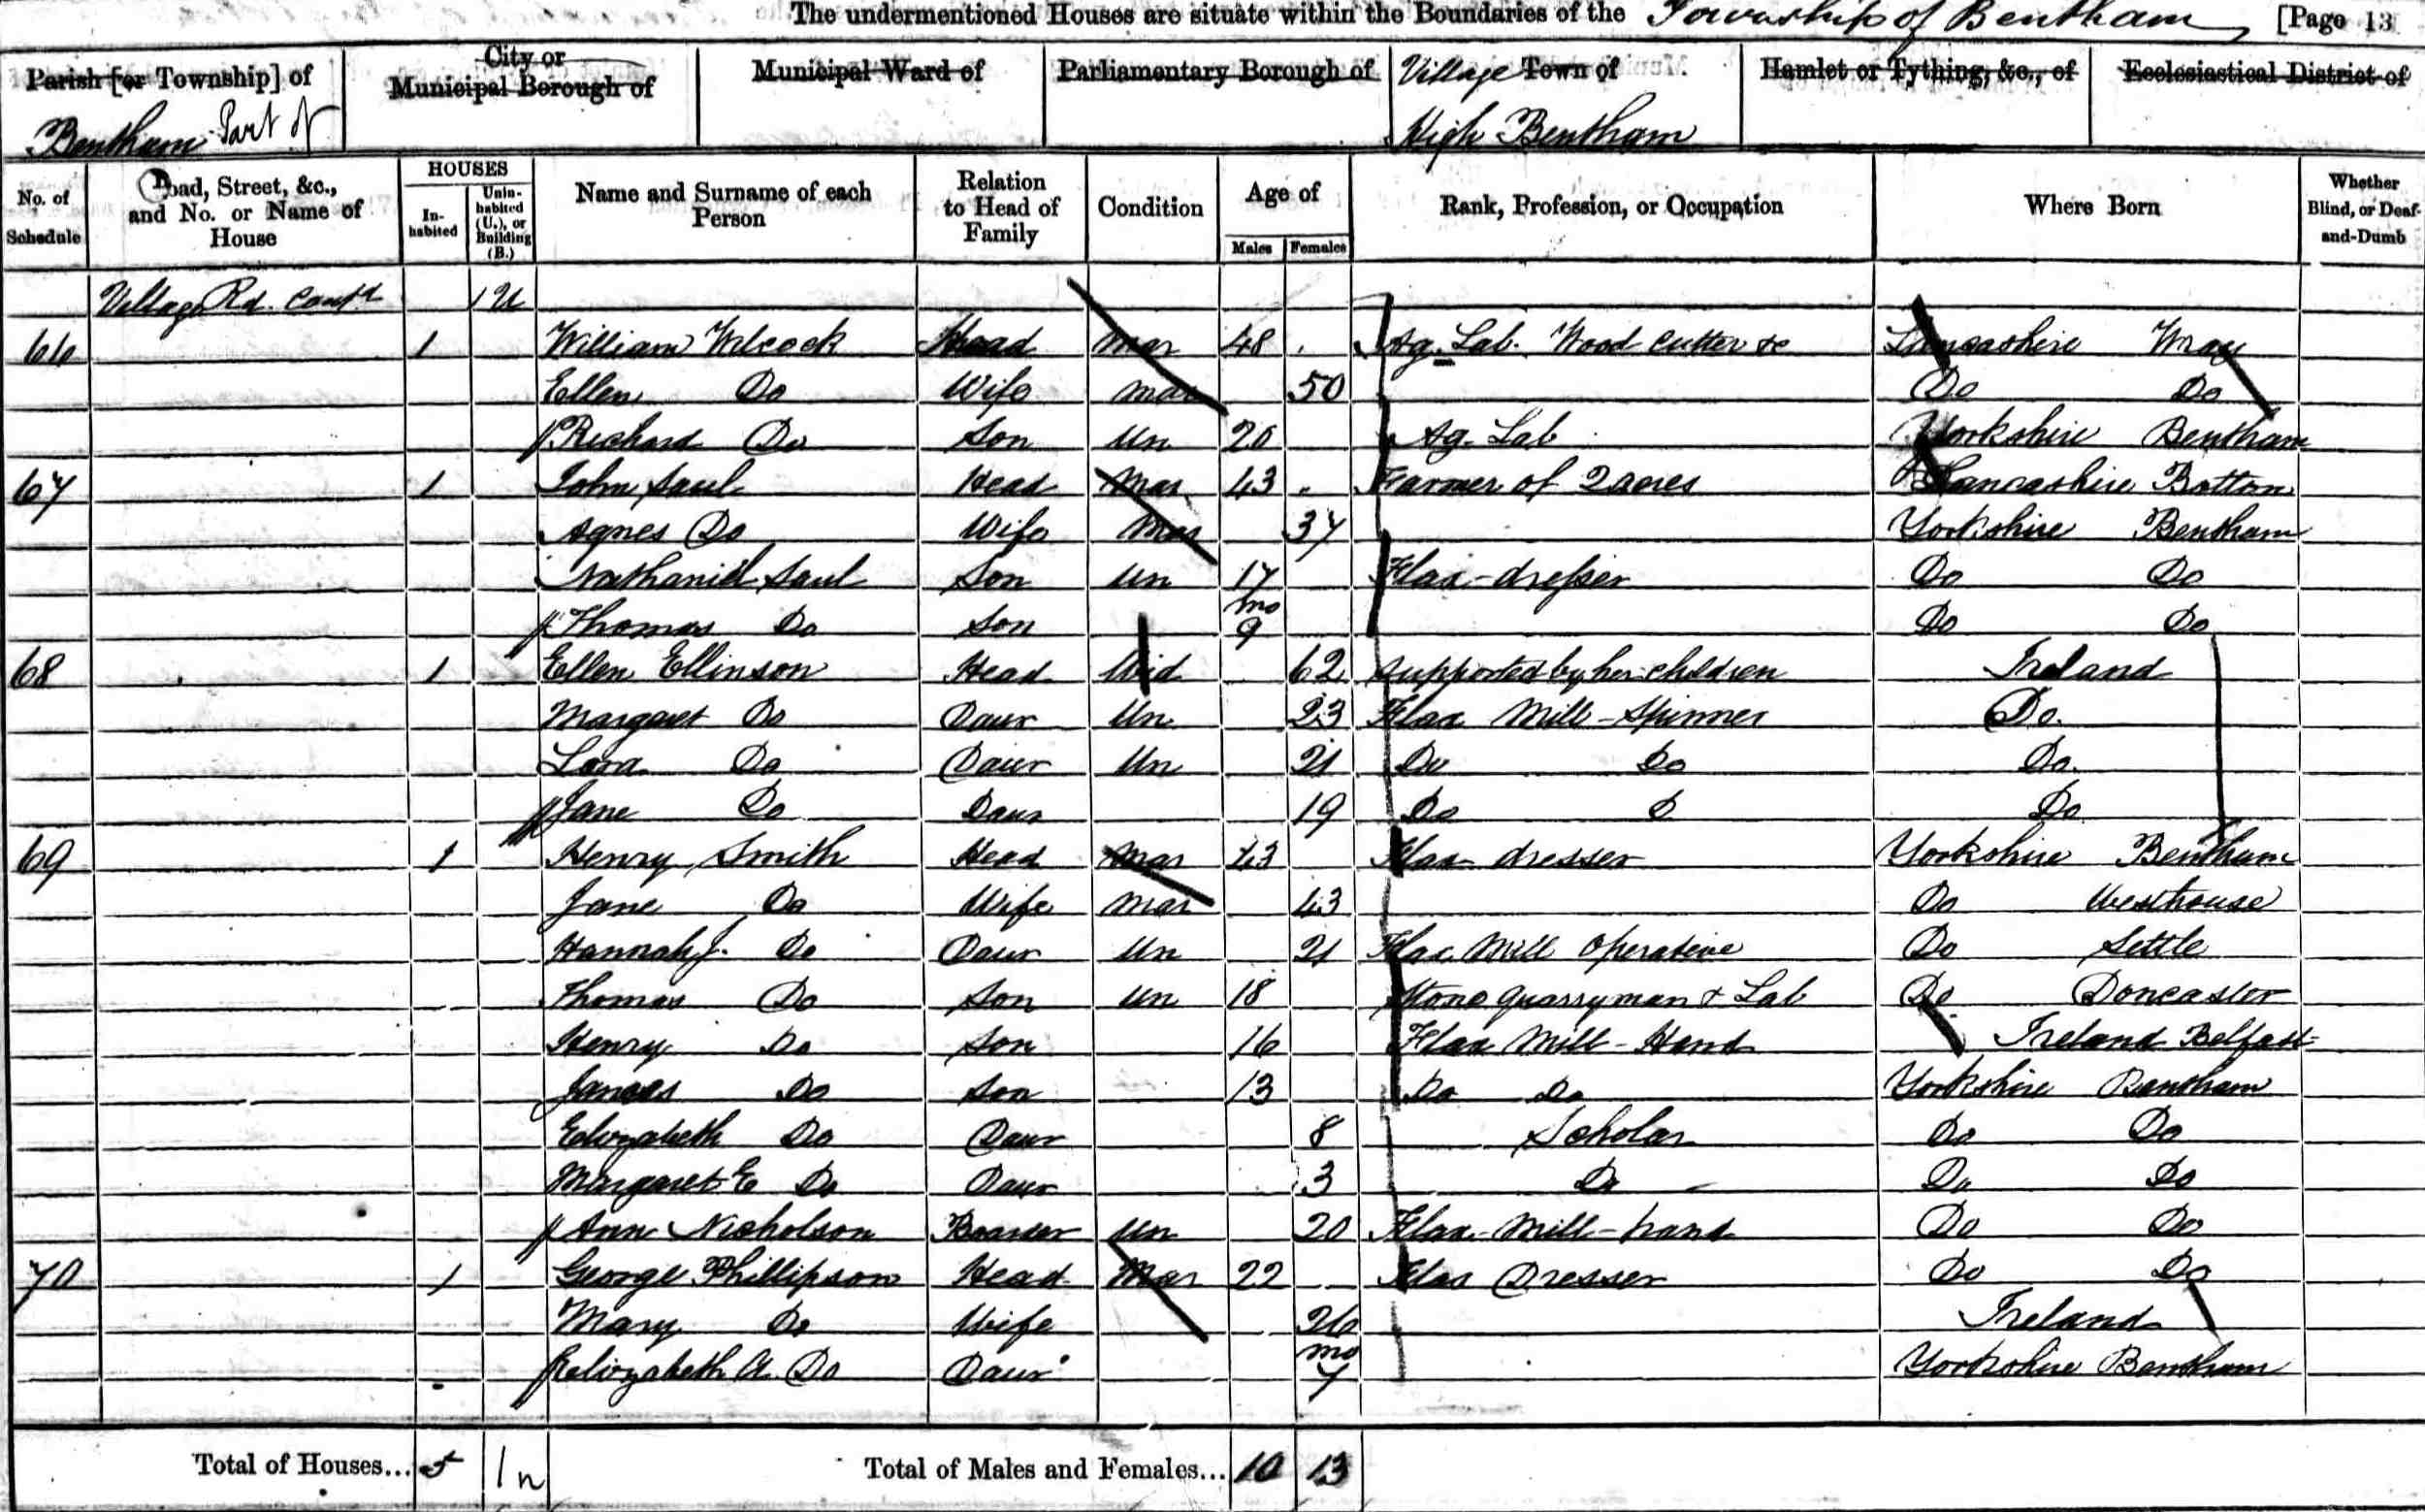 The undermentioned Houses are situate within the Boundaries of the Township of Bentham [Page 13
Parish [or Township] of City or Municipal Borough of Municipal Ward of Parliamentary Borough of Village Town of Hamlet or Tything, &c., of Ecclesiastical District of
Bentham Part of High Bentham
No. of Schedule Road, Street, &c., and No. or Name of House HOUSES Inhabited Uninhabited (U.), or Building (B.) Name and Surname of each Person Relation to Head of Family Condition Age of Males Females Rank, Profession, or Occupation Where Born Whether Blind, or Deaf-and-Dumb
Village Rd. Contd 1 U
66 1 William Wilcock Head Mar 48 Ag. Lab. Wood Cutter &c Lancashire Wray
Ellen Do Wife Mar 50 Do Do
Richard Do Son Un 20 Ag. Lab Yorkshire Bentham
67 1 John Saul Head Mar 43 Farmer of 2 acres Lancashire Botton
Agnes Do Wife Mar 37 Yorkshire Bentham
Nathaniel Saul Son Un 17 Flax-dresser Do Do
Thomas Do Son mo 9 Do Do
68 1 Ellen Ellinson Head Wid 62 supported by her children Ireland
Margaret Do Daur Un 23 Flax Mill-Spinner Do.
Do Daur Un 21 Do Do Do.
Jane Do Daur 19 Do D Do
69 1 Henry Smith Head Mar 43 Flax dresser Yorkshire Bentham
Jane Do Wife Mar 43 Do Westhouse
Hannah J. Do Daur Un 21 Flax Mill Operative Do Settle
Thomas Do Son Un 18 Stone quarryman & Lab Do Doncaster
Henry Do Son 16 Flax Mill-Hand Ireland Belfast
James Do Son 13 Do Do Yorkshire Bentham
Elizabeth Do Daur 8 Scholar Do Do
Margaret E Do Daur 3 Do Do Do
Ann Nicholson Boarder Un 20 Flax-Mill-hand Do Do
70 1 George Phillipson Head Mar 22 Flax Dresser Do Do
Mary Do Wife 26 Ireland
Elizabeth A. Do Daur mo 7 Yorkshire Bentham
Total of Houses... 5 1 Total of Males and Females... 10 13